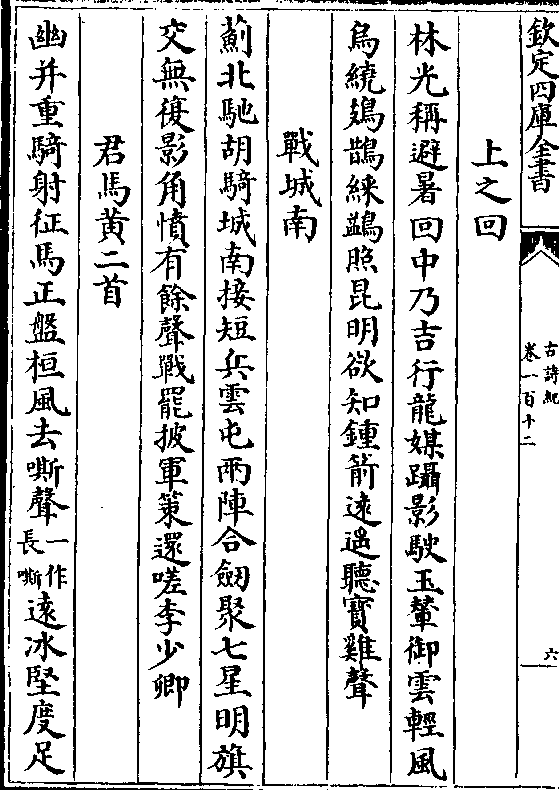 欽定四庫全書
古詩紀
卷一百十二
六
上之回
林光稱避暑回中乃吉行龍媒躡影駛玉輦御雲輕風
烏繞鳷鵲綵鷁照昆明欲知鍾箭逺遥聽寳雞聲
戰城南
薊北馳胡騎城南接短兵雲屯兩陣合劔聚七星明旗
交無復影角憤有餘聲戰罷披軍策還嗟李少卿
君馬黄二首
幽并重騎射征馬正盤桓風去嘶聲一作長嘶逺冰堅度足